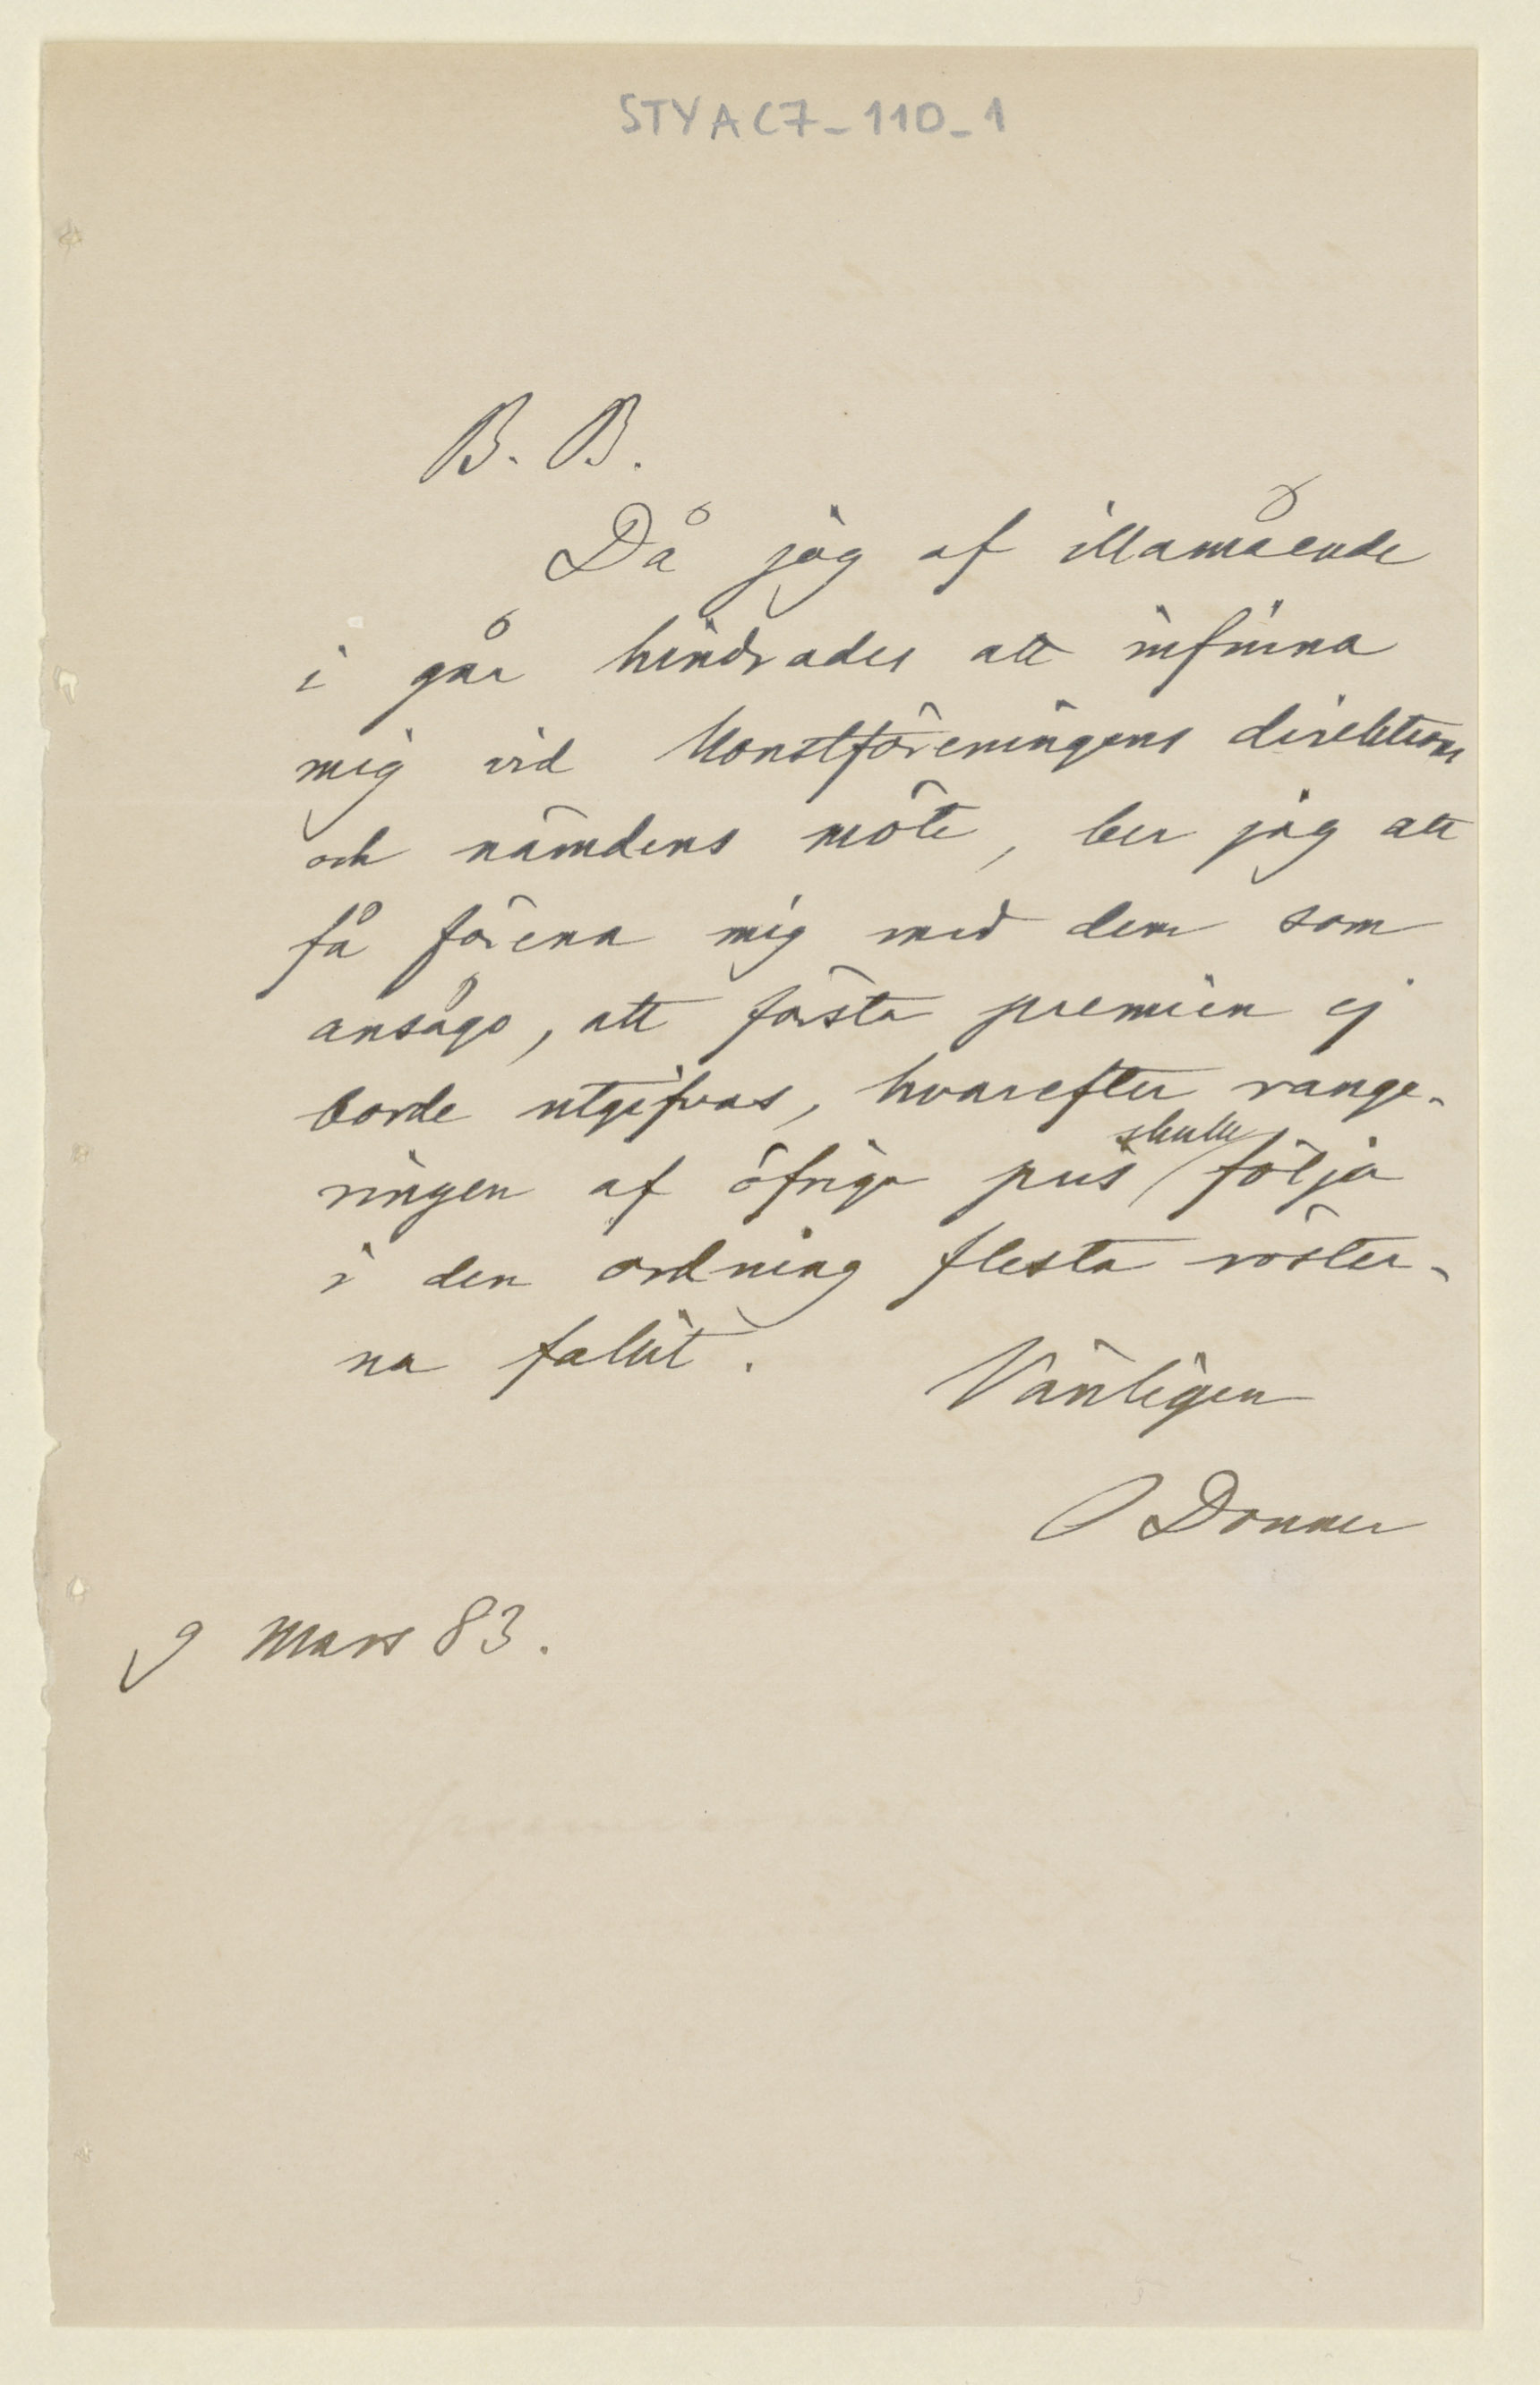 STYAC7-110-1
B. B.
Då jag af illamående
i går hindrades att infinna
mig vid Konstföreningens direktions
och nämdens möte, ber jag att
få förena mig med dem som
ansågo, att första premien ej
borde utgifvas, hvarefter range-
ringen af öfriga pris skulle följa
i den ordning flesta röster-
na fallit.
Vänligen
O Donner
9 Mars 83.